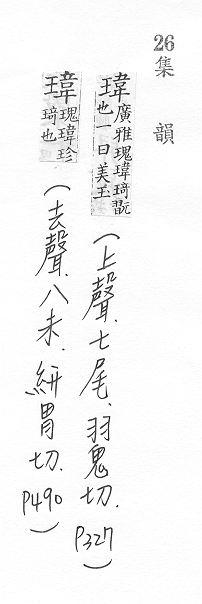 26
集韻
瑋 廣雅瑰瑋琦翫
也一曰美玉
（上聲．七尾．羽鬼切．P327）
瑋 瑰瑋珍
琦也
（去聲．八未．紆胃切．P490）